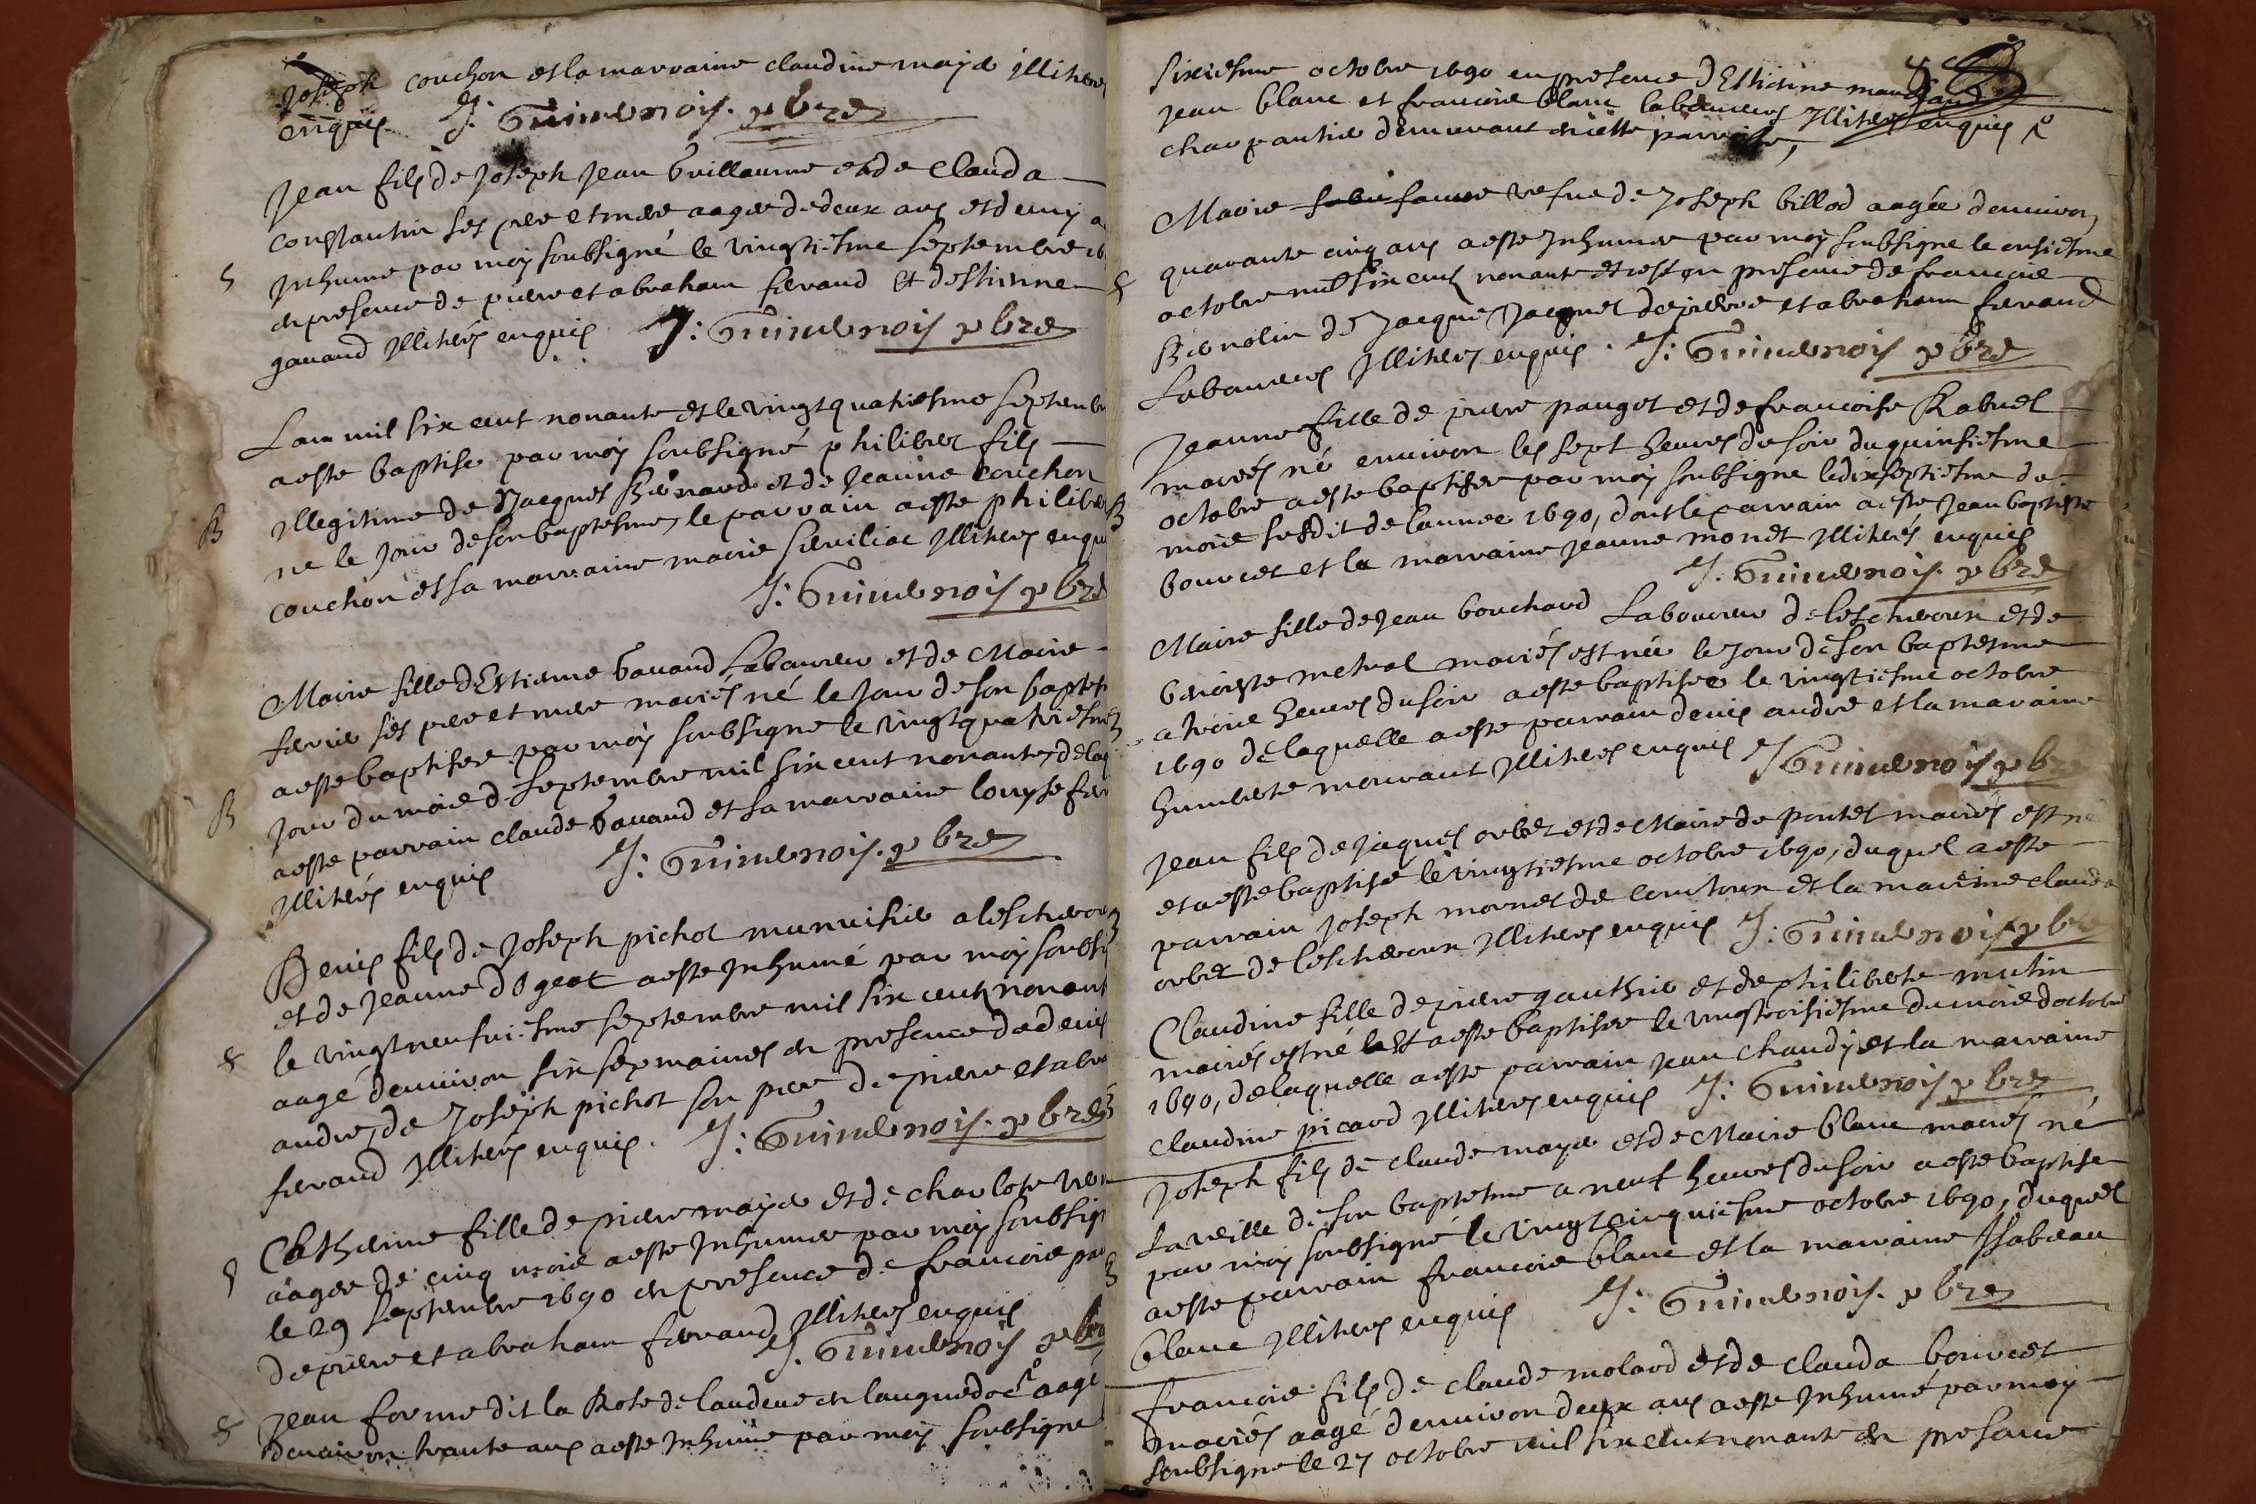 Joseph couchon et la marraine claudine maire Illiterés
enquis J: Guimenois. pbre
Jean fils de Joseph Jean Guillaume et de Clauda
constantin ses pere et mere aagée de deux ans et demy a
Inhume par moy soubsigné le vingtiesme septembre 16
en presence de piere et abraham feraud et destienne
gauaud Illiterés enquis J: Guimenois pbre
Lan mil six cent nonante et le vingt quatriesme septembre
a este baptise par moy soubsigné philibert fils
S
Illegitime de Jacques Bernard et de Jeanne couchon
B
ne le jour de son baptesme, le parrain a este philibert
couchon et sa marraine marie Illiterés enquis
J: Guimenois pbre
Marie fille dEstienne Gauaud Laboureur et de Marie
ferrie ses pere et mere mariés né le Jour de son baptes
a este baptisée par moy soubsigne le vingt quatriesme
Jour du mois de septembre mil six cent nonante, de laq
B
a este parrain claude Gauaud et sa marraine louyse
Illiterés enquis J: Guimenois. pbre
Denis fils de Joseph pichot munusier a lescheroux
et de Jeanne dOgeat a este Inhumé par moy soubsi
le vingt neufuiesme septembre mil six cent nonante
S
aagé denuiron six sepmaines en presence de denis
andre, de Joseph pichot son pere de piere et abra
feraud Illiterés enquis. J: Guimenois. pbre
Catherine fille de piere maire et de charlote
aagée de cinq mois a este Inhumée par moy soubsig
S
le 29 septembre 1690 en presence de francois
de piere et abraham feraud Illiterés enquis
J. Guimenois pbre
Jean forme dit la Rose de en languedoc aagé
S
denuiron trante ans a este Inhumé par moy soubsigne
sixiesme octobre 1690 en presence dEstienne marchand
Jean blanc et francois blanc laboureurs Illiterés enquis
charpantier demeurant en cette parroisse,
Marie faure vefue de Joseph billod aagée denuiron
quarante cinq ans a este Inhumée par moy soubsigne le onsiesme
S
octobre mil six cent nonante et est en presence de francois
Bernolin de Jacque Jacquet de pierre et abraham feraud
Laboureurs Illiterés enquis. J: Guimenois pbre
Jeanne fille de piere pauget et de francoise Rabuel
mariés né enuiron les sept heures du soir du quinsiesme
octobre a este baptisée par moy soubsigne le dixseptiesme du
B
mois susdit de lannee 1690, dont le parrain a este Jean baptiste
bourcet et la marraine Jeanne monet Illiterés enquis
J. Guimenois. pbre
Marie fille de Jean bouchard Laboureur de lescheroux et de
benoiste metral mariés est née le jour de son baptesme
a trois heures du soir a este baptisée le vingtiesme octobre
1690 de laquelle a este parrain denis andre et la maraine
humberte morant Illiterés enquis J Guimenois pbre
Jean fils de Jaques orbet et de Marie de pontet mariés est né
et a este baptisé le vingtiesme octobre 1690, duquel a este
parrain Joseph mornet de et la mareine clauda
orbet de lescheroux Illiterés enquis J: Guimenois pbre
Claudine fille de piere gauthie et de philiberte mutin
mariés est né et a este baptisée le vingt troisiesme du mois doctobre
1690, de laquelle a este parrain Jean chaudy et la marraine
claudine picard Illiterés enquis J: Guimenois pbre
Joseph fils de claude maire et de Marie blanc mariés né
La veille de son baptesme a neuf heures du soir a este baptise
par moy soubsigné le vingt cinquiesme octobre 1690, duquel
a este parrain francois blanc et la marraine Isabeau
blanc Illiterés enquis J: Guimenois. pbre
francois fils de claude molard et de clauda bourcet
mariés aagé denuiron deux ans a este Inhumé par moy
soubsigne le 27 octobre mil six cent nonante en presence